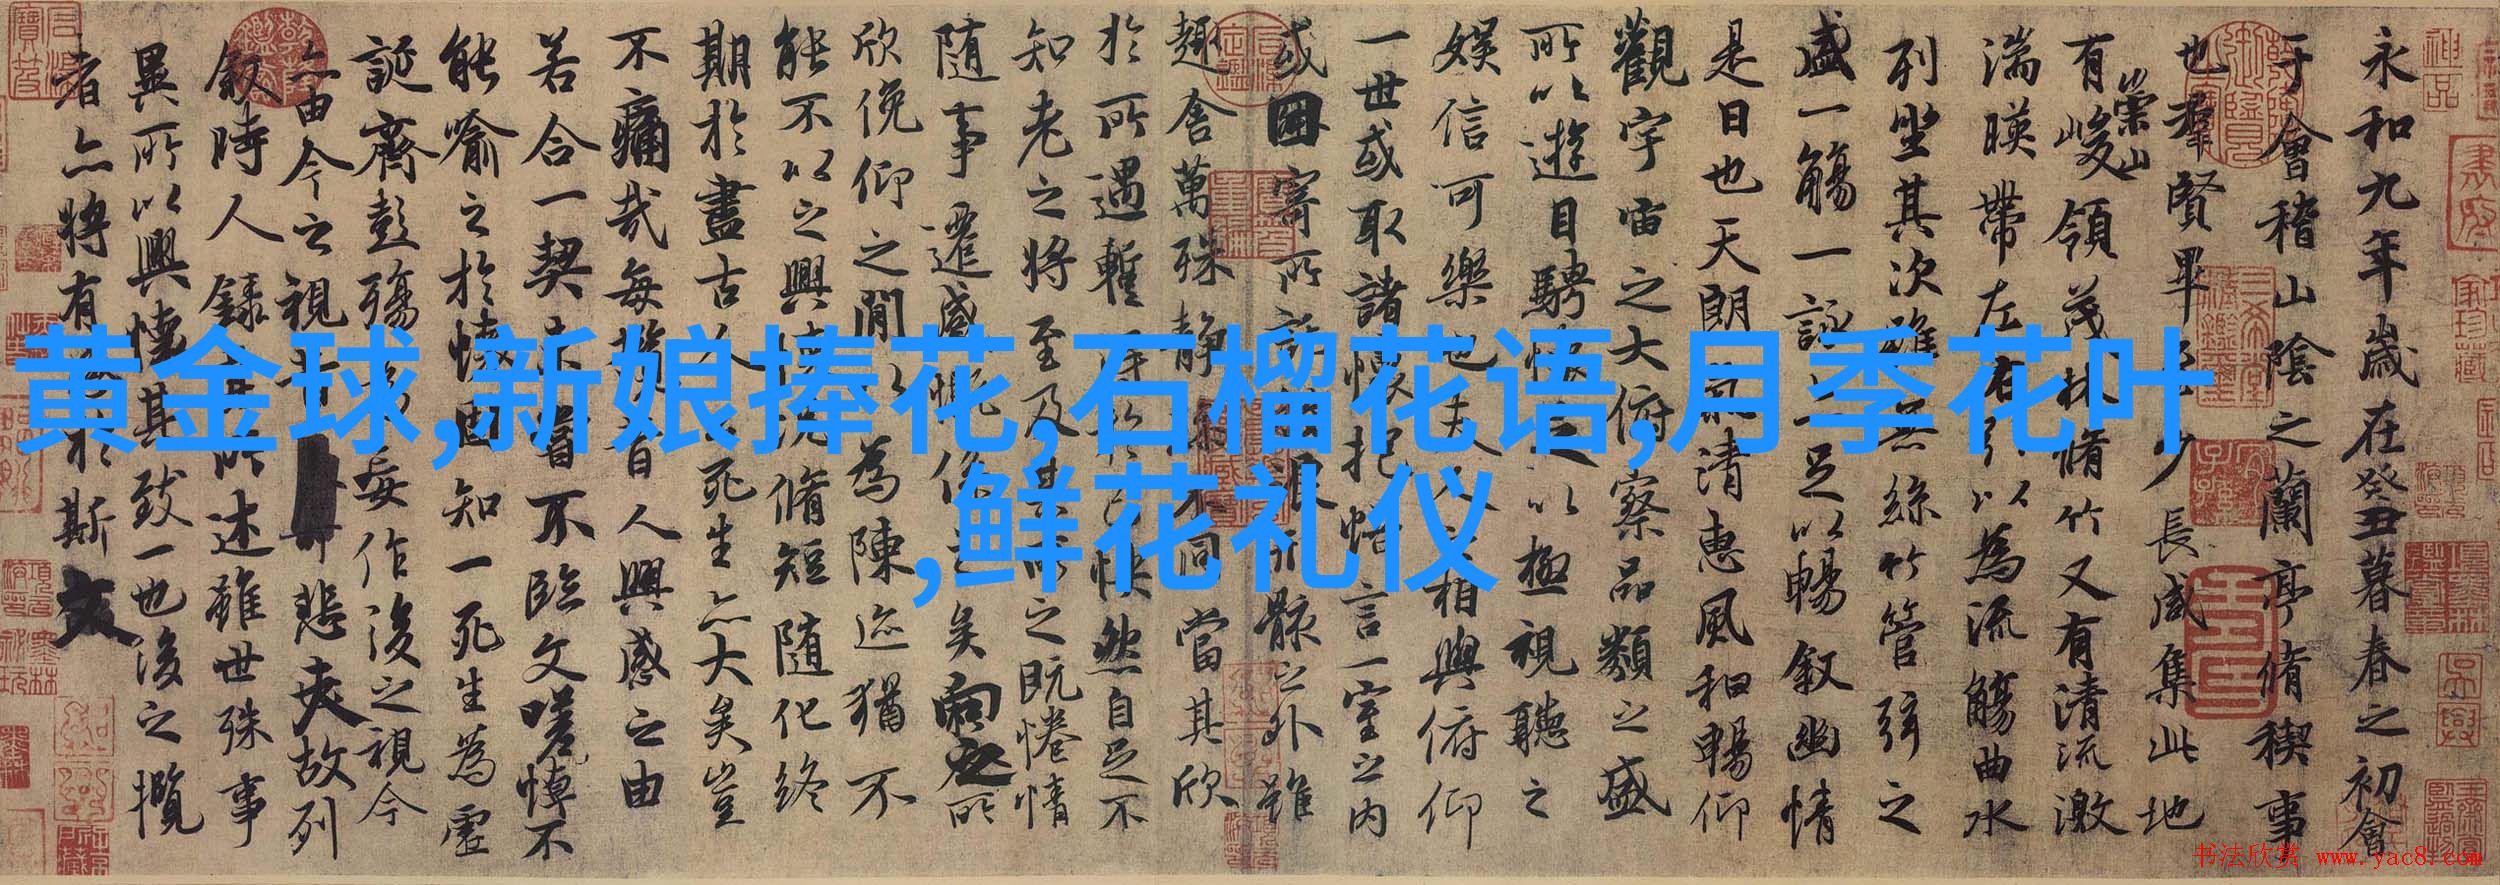 黄金球,新娘捧花,石榴花语,月季花叶
,鲜花礼仪
永和九年歲在癸丑暮春之初會
于會稽山陰之蘭亭脩稧事
也群賢畢至少長咸集此地
有崇山峻領茂林脩竹又有清流激
湍暎帶左右引以為流觴曲水
列坐其次雖無絲竹管弦之
盛一觴一詠亦足以暢敘幽情
是日也天朗氣清惠風和暢仰
觀宇宙之大俯察品類之盛
所以遊目騁懷足以極視聽之
娛信可樂也夫人之相與俯仰
一世或取諸懷抱悟言一室之內
或因寄所託放浪形骸之外雖
趣舍萬殊靜躁不同當其欣
於所遇暫得於己怏然自足不
知老之將至及其所之既惓情
隨事遷感慨係之矣向之所
欣俛仰之閒以為陳迹猶不
能不以之興懷況脩短隨化終
期於盡古人云死生亦大矣豈
不痛哉每攬昔人興感之由
若合一契未嘗不臨文嗟悼不
能喻之於懷固知一死生為虛
誕齊彭殤為妄作後之視今
亦由今之視昔悲夫故列
敘時人錄其所述雖世殊事
異所以興懷其致一也後之攬
者亦將有感於斯文
书法欣赏 www.yac8.com